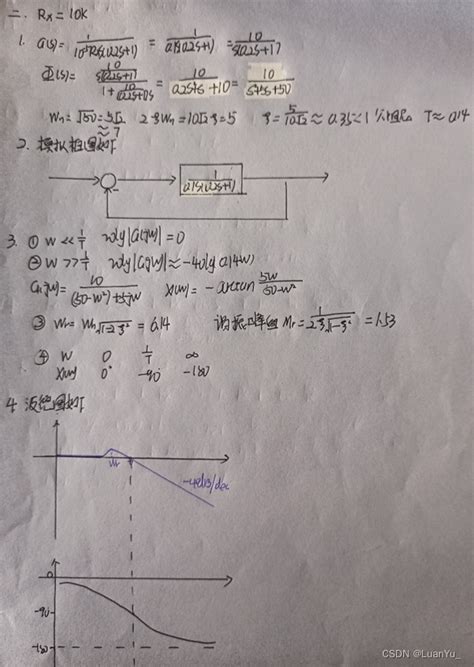 二. Rx = 10K
1. G(s) = 1/(10^5 R s(0.2s+1)) = 1/(0.1s(0.2s+1)) = 10/(s(0.2s+1))
Φ(s) = = 10/(0.2s²+s+10) = 50/(s²+5s+50)
Wn = √50 = 5√2 ≈ 7 2ζWn = 10√2ζ = 5 ζ = 5/(10√2) ≈ 0.35 < 1 T ≈ 0.14
2. 模拟框图如下
1/(0.1s(0.2s+1))
3. ① W << 1/T 20lg|G(jw)| = 0
② W >> 1/T 20lg|G(jw)| ≈ -40lg 0.14w)
G(jw) = 10/((50-W²)+5jw) X(w) = -arctan 5W/(50-W²)
③ Wr = Wn√(1-2ζ²) = 6.14 谐振峰值 Mr = 1/(2ζ√(1-ζ²)) = 1.53
④ W 0 1/T ∞
X(w) 0° -90 -180
4. 波德图如下
Wr
-40dB/dec
0
-90
-180
CSDN @LuanYu_